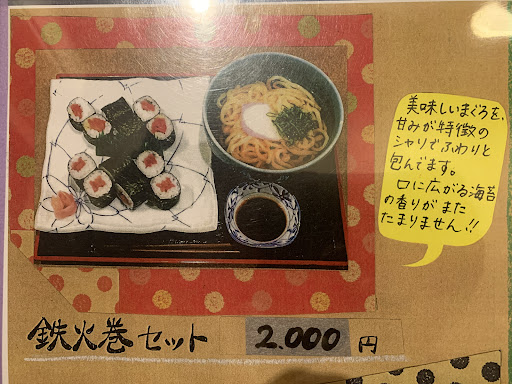 美味しいまぐろを、
甘みが特徴の
シャリでふわりと
包んでます。
口に広がる海苔
の香りがまた
たまりません!!
鉄火巻セット 2.000 円